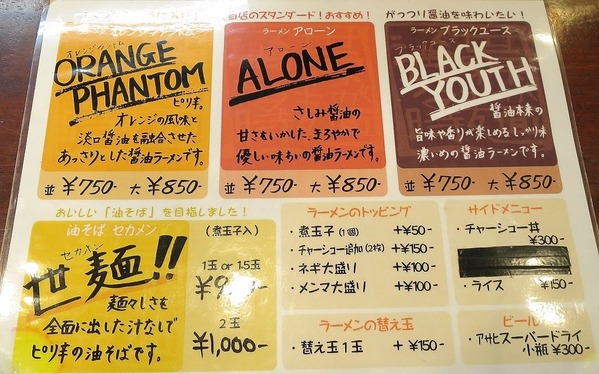 オレンジファントム
ORANGE
PHANTOM
ピリ辛。
オレンジの風味と
淡口醤油を融合させた
あっさりとした醤油ラーメンです。
並 ¥750- 大 ¥850-
当店のスタンダード！おすすめ！
ラーメン アローン
アローン
ALONE
さしみ醤油の
甘さをいかした、まろやかで
優しい味わいの醤油ラーメンです。
並 ¥750- 大 ¥850-
がっつり醤油を味わいたい！
ラーメン ブラックユース
ブラックユース
BLACK
YOUTH
醤油本来の
旨味や香りが楽しめるしっかり味
濃いめの醤油ラーメンです。
並 ¥750- 大 ¥850-
おいしい「油そば」を目指しました！
油そば セカメン
セカメン
世麺!!
麺々しさを
全面に出した汁なしで
ピリ辛の油そばです。
(煮玉子入)
1玉 or 1.5玉
2玉
¥1,000-
ラーメンのトッピング
・煮玉子(1個) +¥50-
・チャーシュー追加(2枚) +¥150-
・ネギ大盛り +¥100-
・メンマ大盛り +¥100-
ラーメンの替え玉
・替え玉1玉 +¥150-
サイドメニュー
・チャーシュー丼
¥300-
・ライス ¥150-
ビール
・アサヒスーパードライ
小瓶 ¥300-